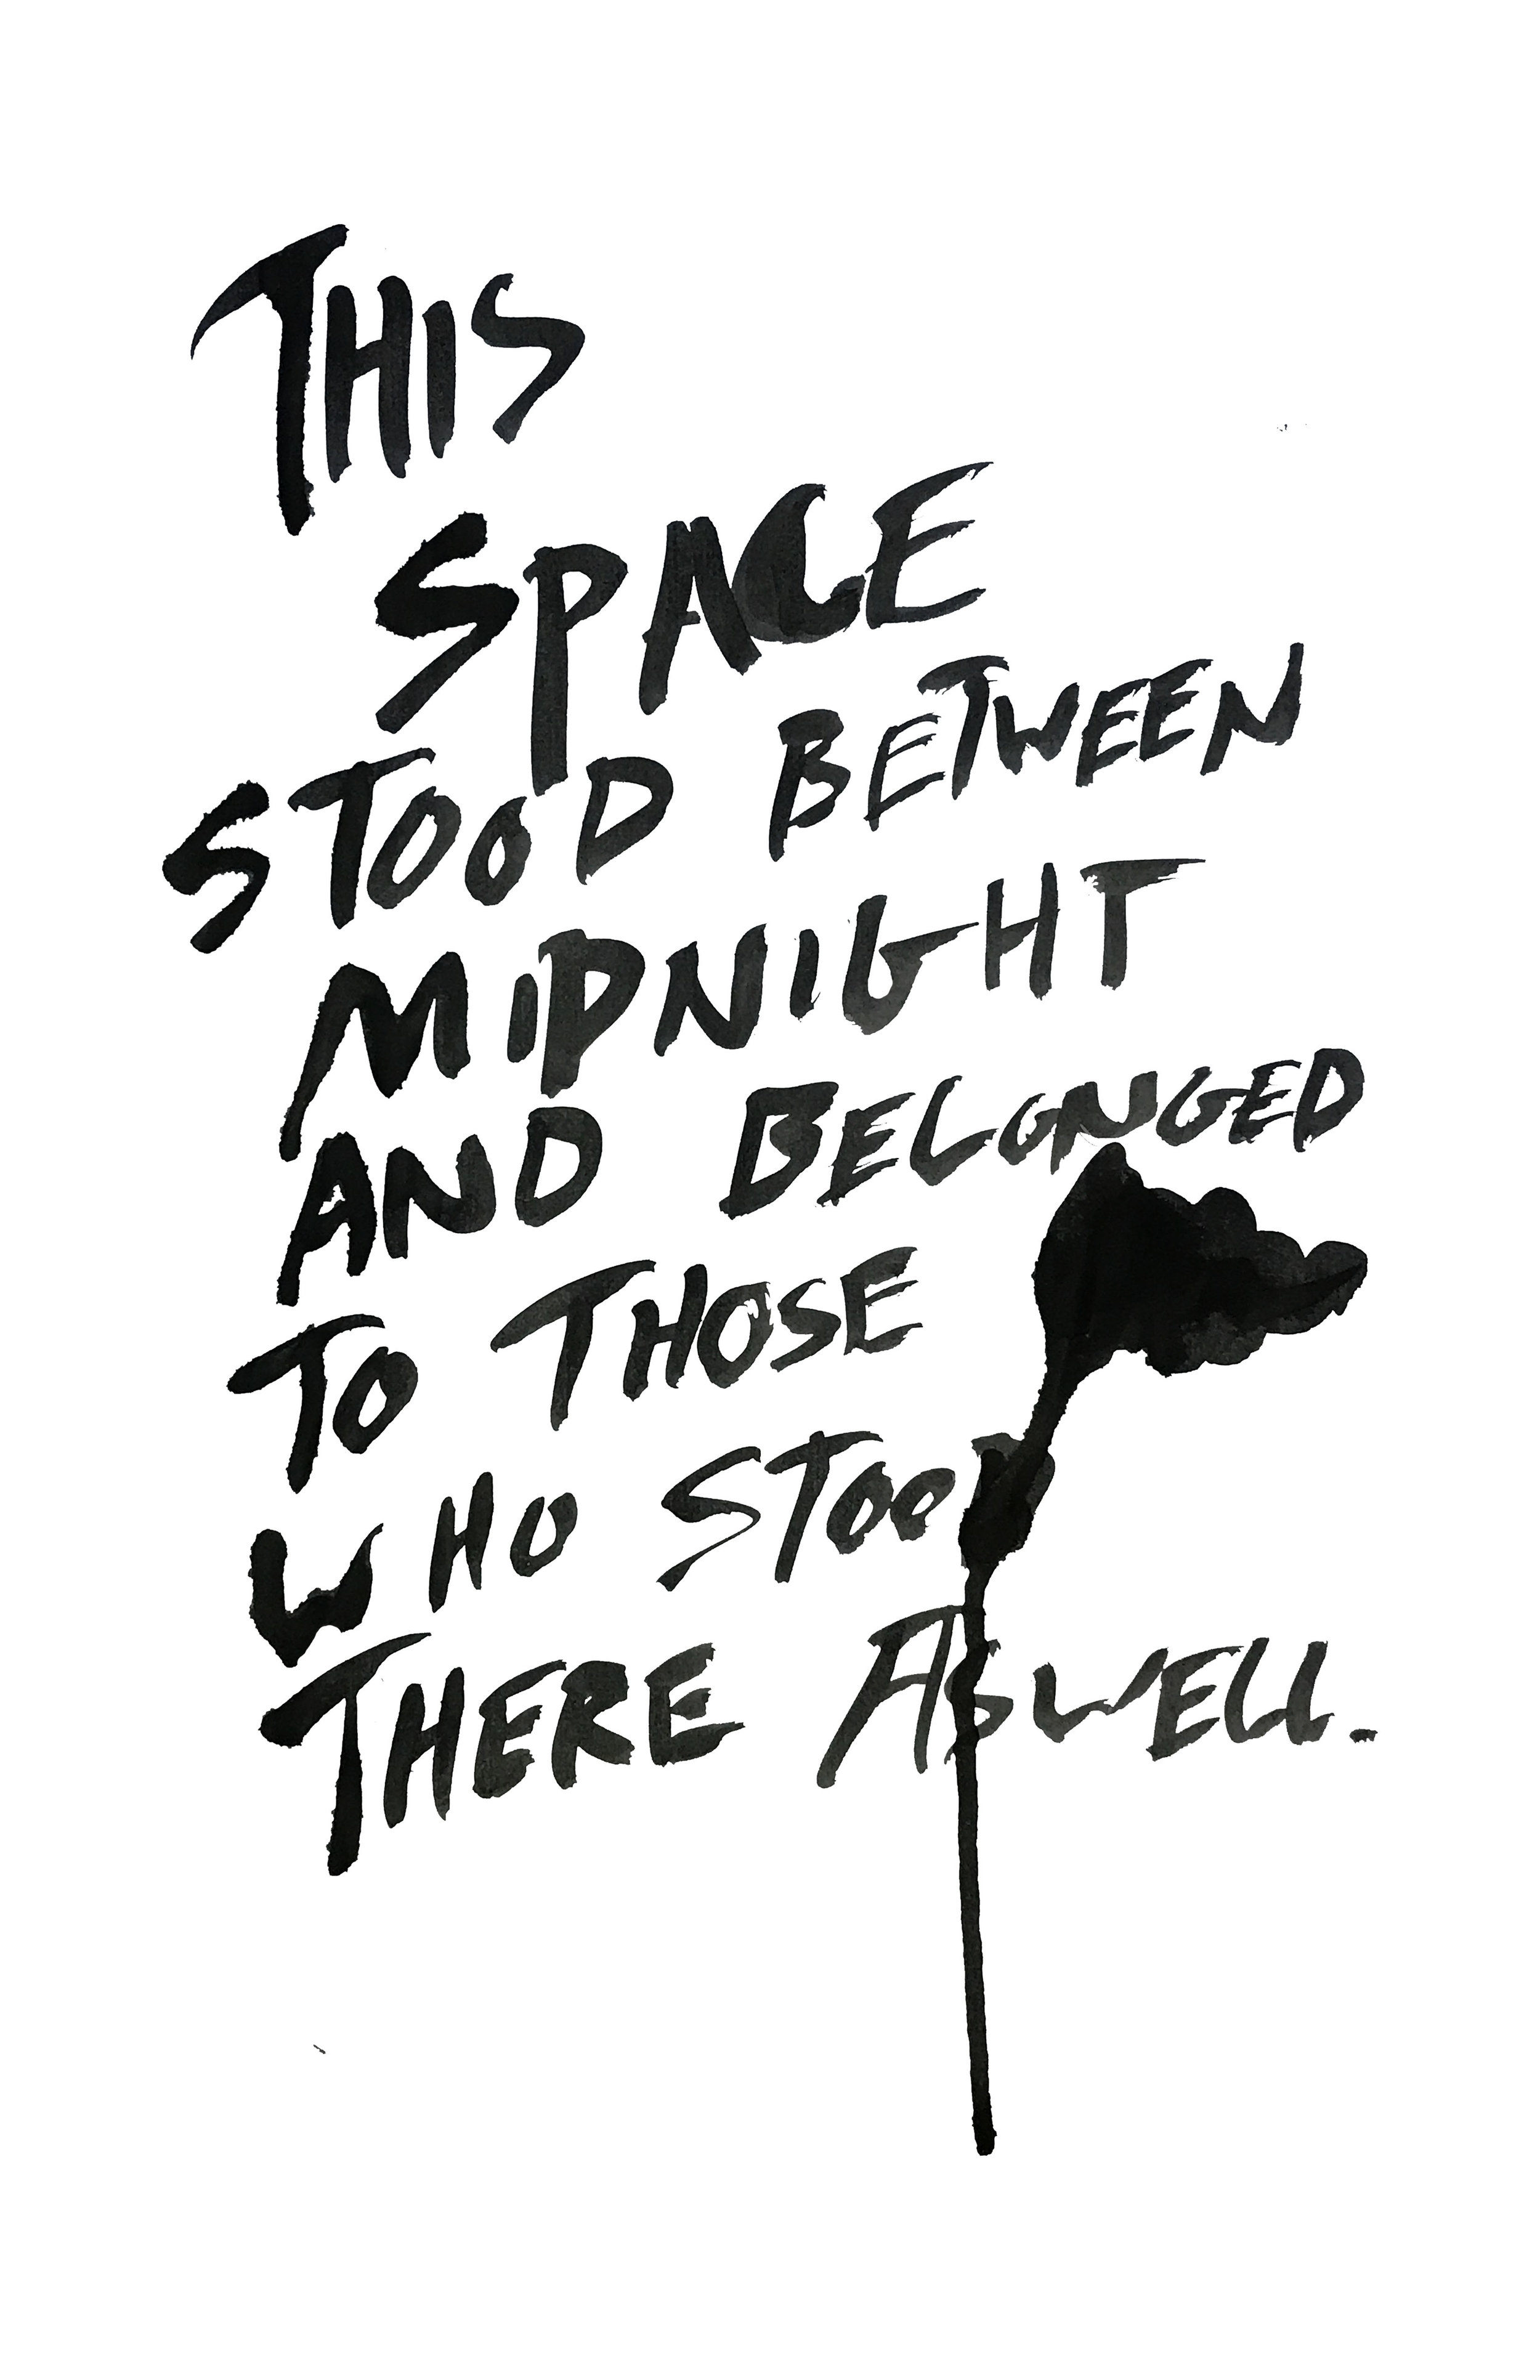 THIS
SPACE
STOOD BETWEEN
MIDNIGHT
AND BELONGED
TO THOSE
WHO STOOD
THERE ASWELL.